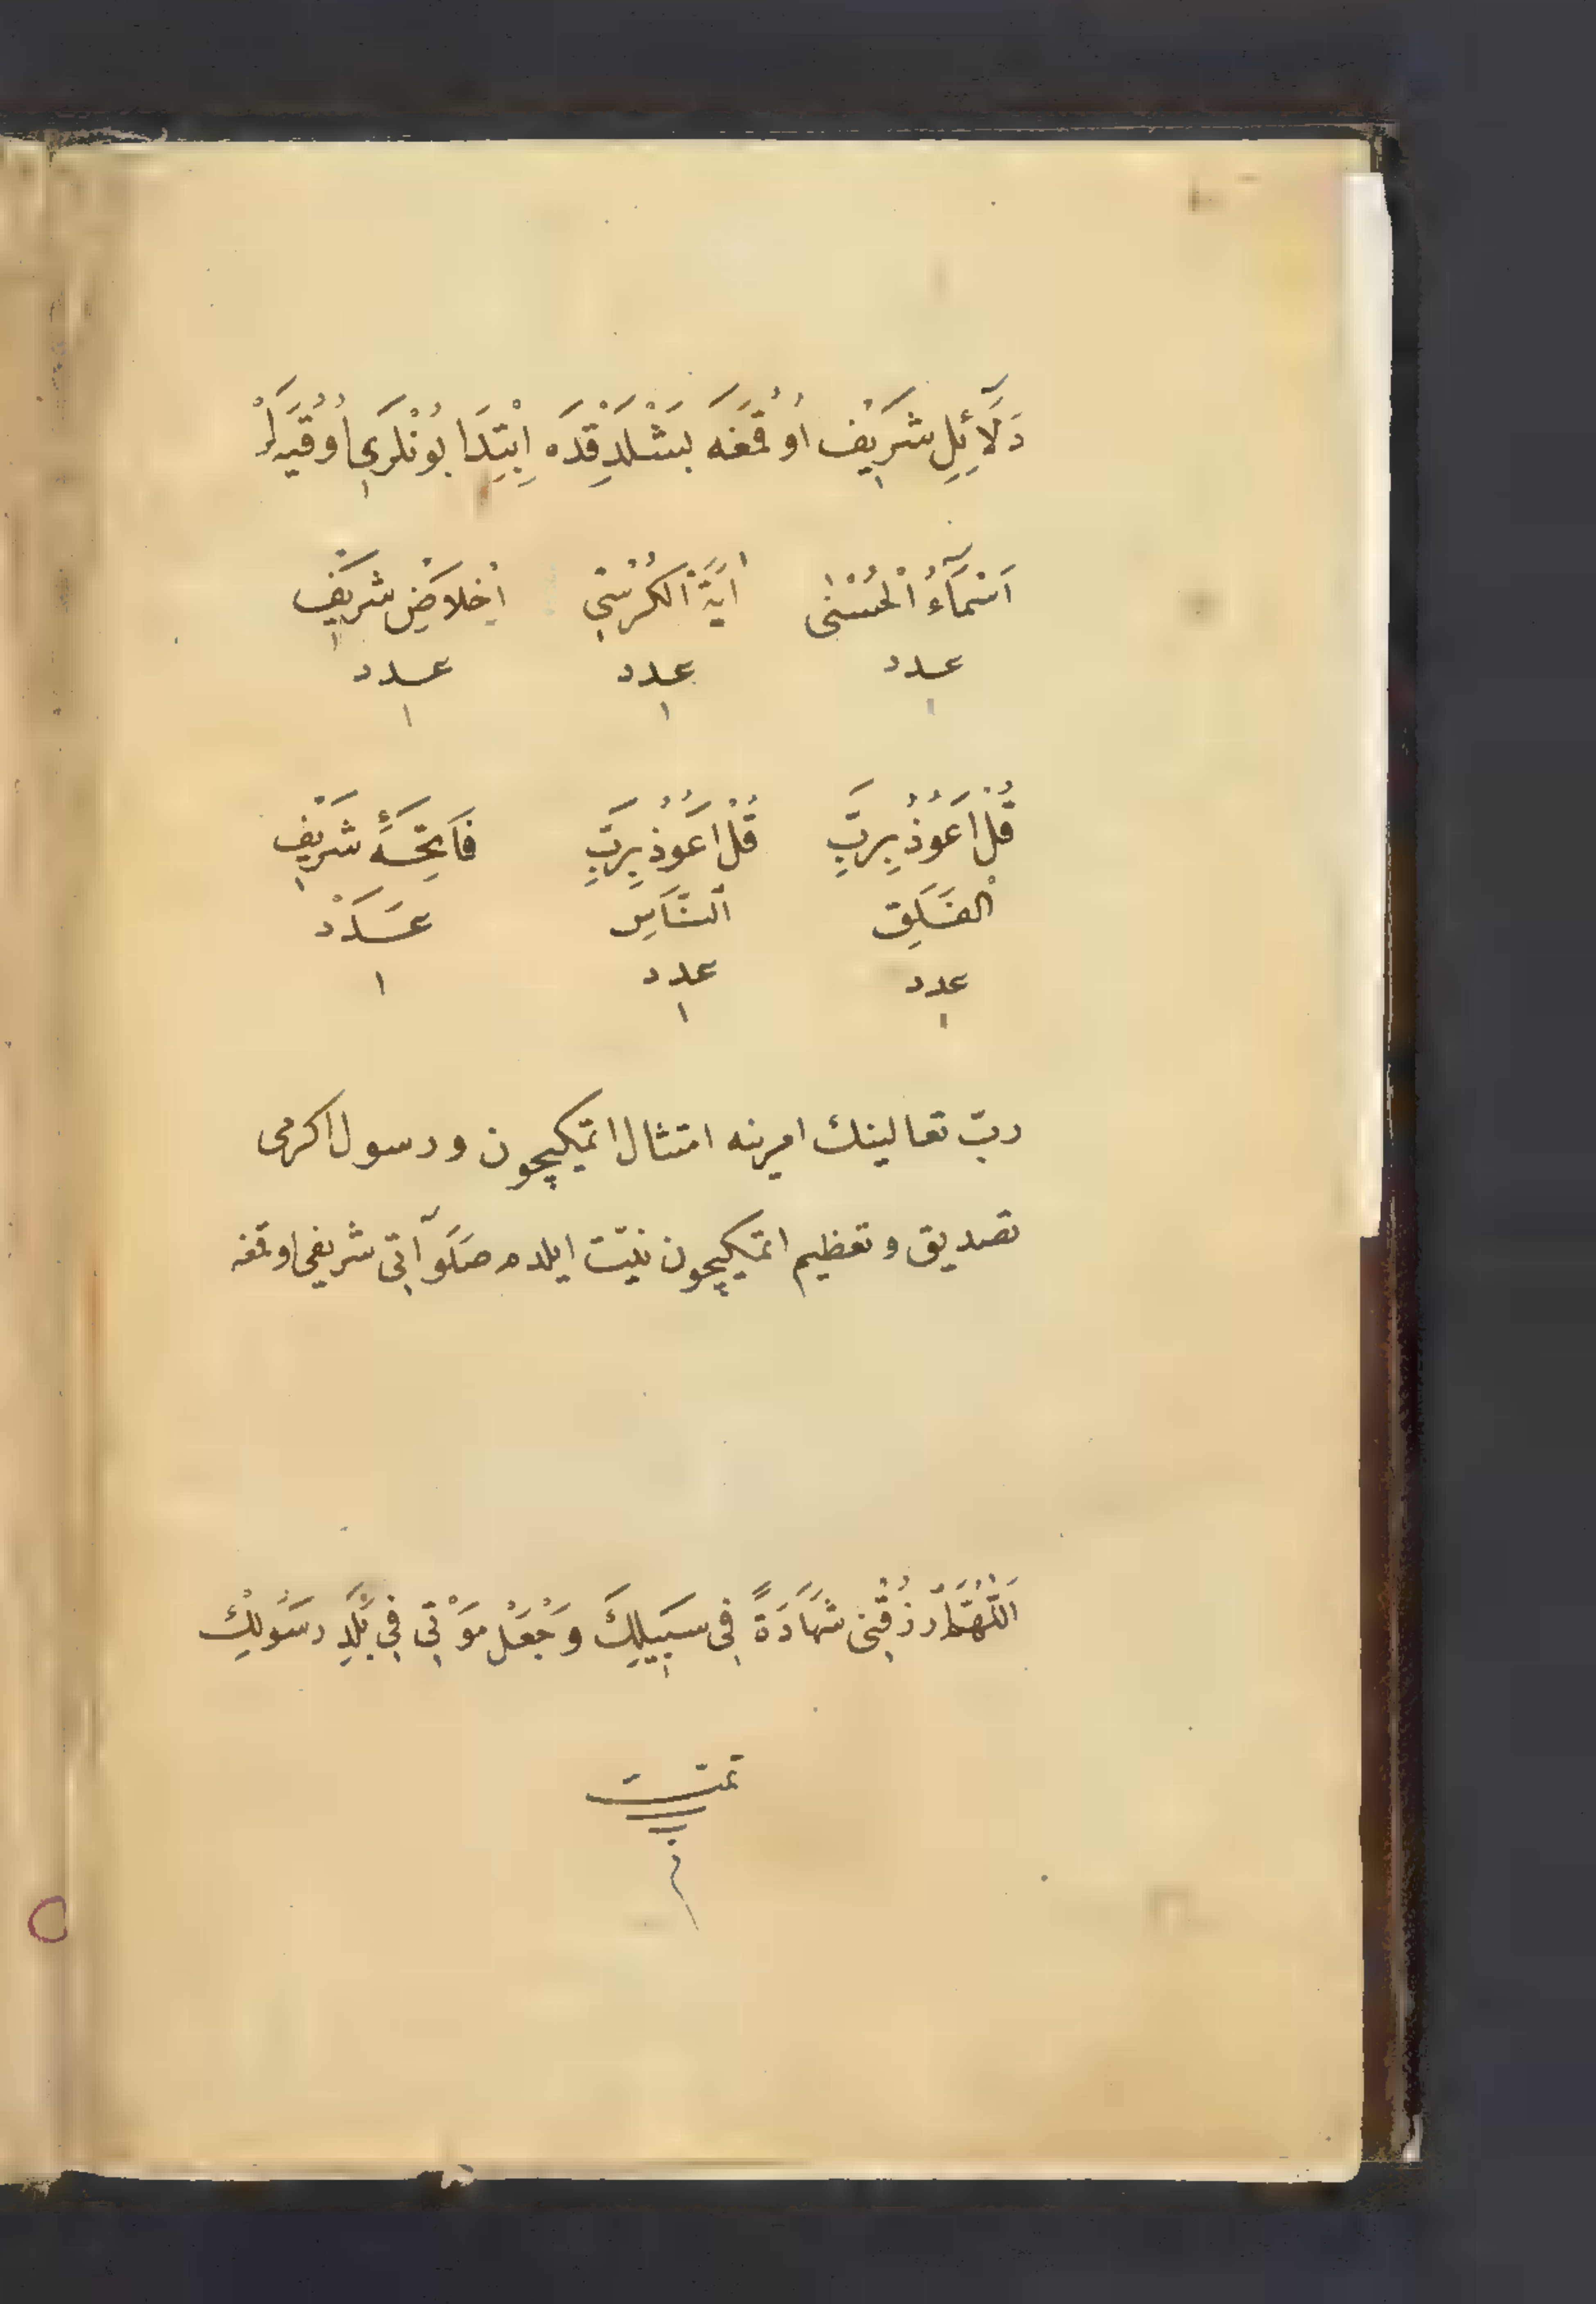 دَلَٓائِلِ شَرِيف اُوقُمَغَه بَشْلَدِقْدَه اِبْتِدَا بُونْلَرِى اُوقُيَهلَرْ
اَسْمَٓاءُ الْحُسْنٰى اٰيَةُ الْكُرْسِي اِخْلَاصِ شَرِيفْ
عدد عدد عدد
١ ١ ١
قُلْ اَعُوذُ بِرَبِّ قُلْ اَعُوذُ بِرَبِّ فَاتِحَۀِ شَرِيفْ
الْفَلَقِ النَّاسِ عَدَدْ
عدد عدد ١
١ ١
ربّ تعالينك امرينه امتثال اتمكيچون و رسول اكرمى
تصديق و تعظيم اتمكيچون نيّت ايلده صَلَوٓاتى شريفى اوقمغه
اَللّٰهُمَّ ارْزُقْنِى شَهَادَةً فِى سَبِيلِكَ وَجْعَلْ مَوْتِى فِى بَلَدِ رَسُولِكْ
تمت
م